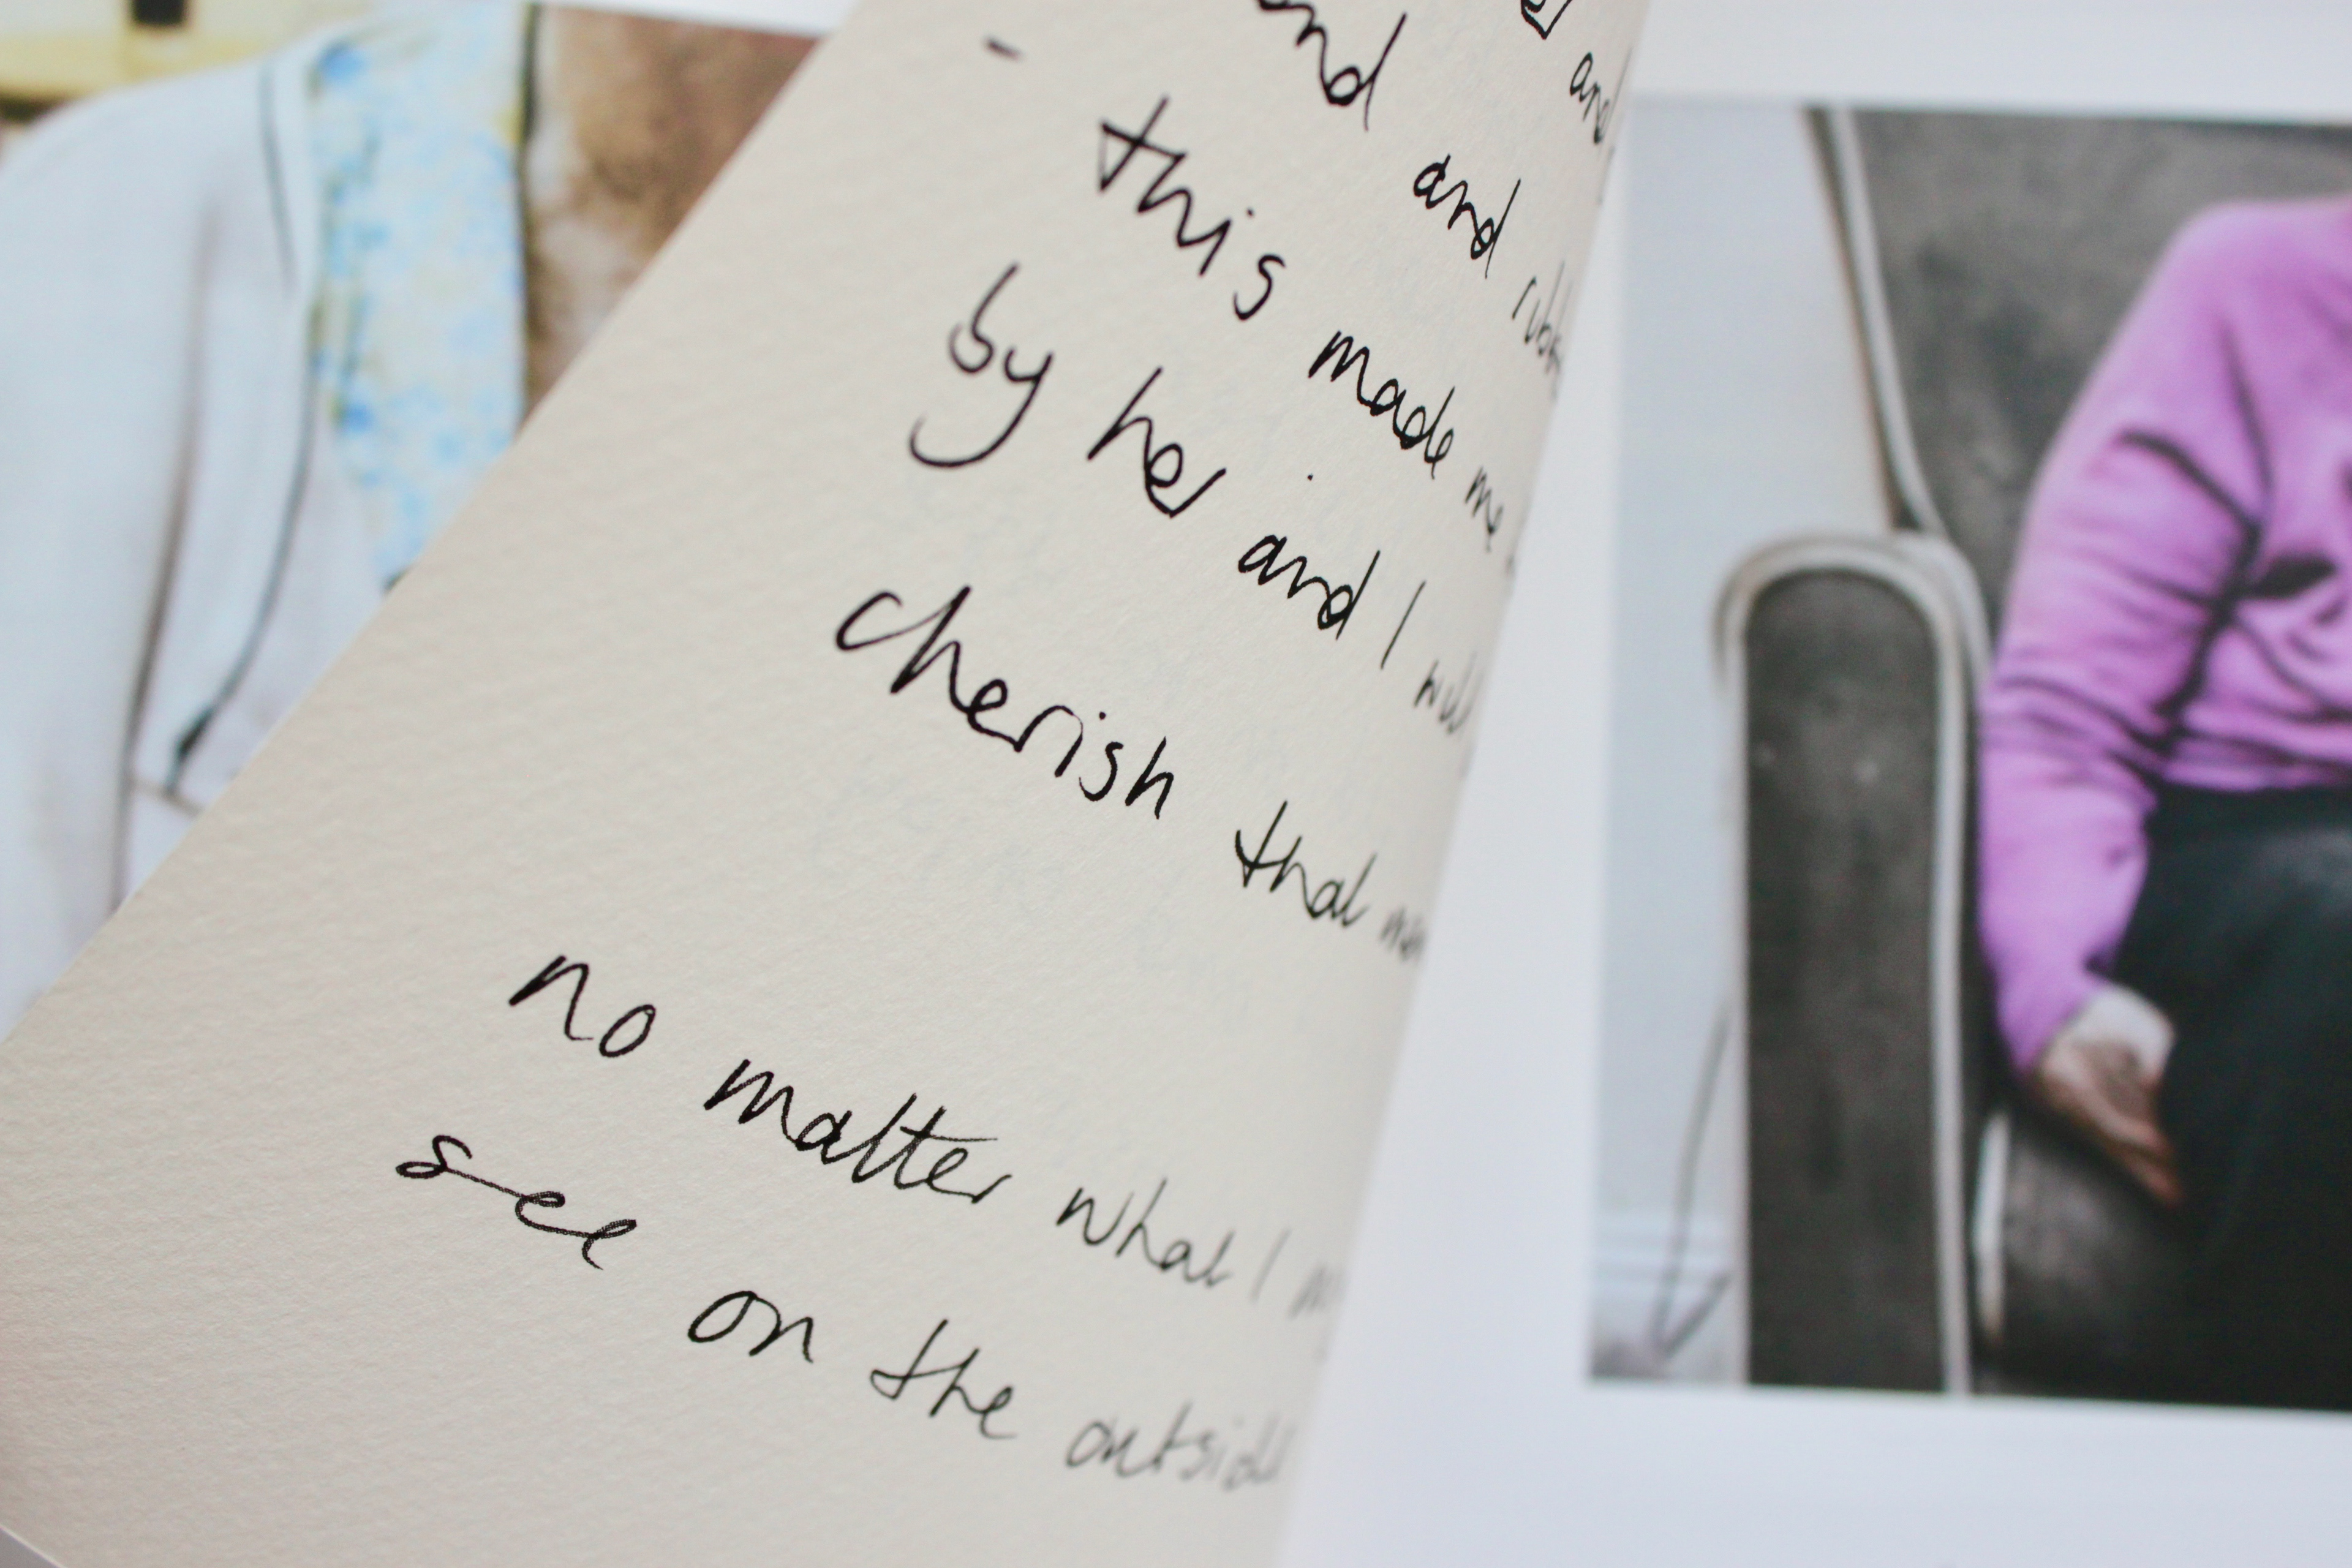 and
and
- this made me
by her and I will
cherish that
no matter what I
see on the outside